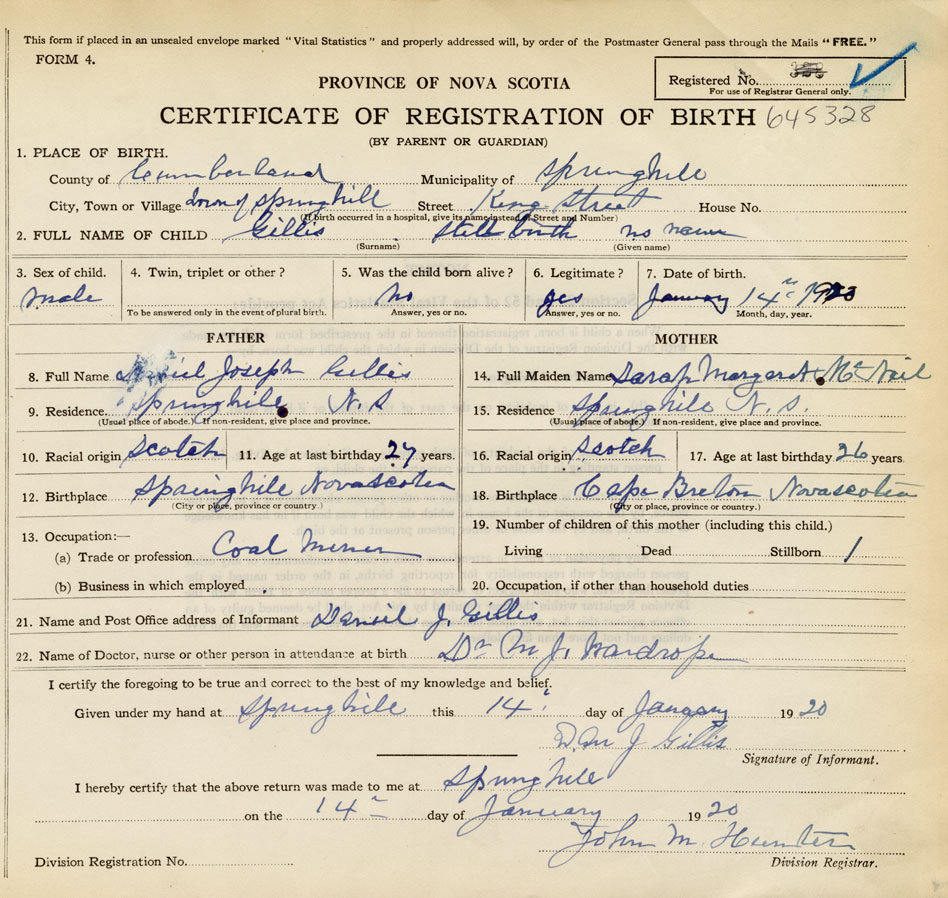 This form if placed in an unsealed envelope marked "Vital Statistics" and properly addressed will, by order of the Postmaster General pass through the Mails "FREE."
FORM 4.
Registered No.
For use of Registrar General only.
PROVINCE OF NOVA SCOTIA
CERTIFICATE OF REGISTRATION OF BIRTH 645328
(BY PARENT OR GUARDIAN)
1. PLACE OF BIRTH.
County of Cumberland Municipality of Springhill
City, Town or Village Town of Springhill Street King Street House No.
(If birth occurred in a hospital, give its name instead of Street and Number)
2. FULL NAME OF CHILD Gillis Still birth no name
(Surname) (Given name)
3. Sex of child. 4. Twin, triplet or other? 5. Was the child born alive? 6. Legitimate? 7. Date of birth.
Male No yes January 14
To be answered only in the event of plural birth. Answer, yes or no. Answer, yes or no. Month, day, year.
FATHER
8. Full Name Joseph Gillis
9. Residence Springhill N.S
(Usual place of abode.) If non-resident, give place and province.
10. Racial origin Scotch 11. Age at last birthday 27 years.
12. Birthplace Springhill Novascotia
(City or place, province or country.)
13. Occupation:—
(a) Trade or profession Coal Miner
(b) Business in which employed
MOTHER
14. Full Maiden Name Sarah Margaret McNeil
15. Residence Springhill N.S.
(Usual place of abode.) If non-resident, give place and province.
16. Racial origin Scotch 17. Age at last birthday 26 years
18. Birthplace Cape Breton Novascotia
(City or place, province or country.)
19. Number of children of this mother (including this child.)
Living Dead Stillborn 1
20. Occupation, if other than household duties
21. Name and Post Office address of Informant Daniel J. Gillis
22. Name of Doctor, nurse or other person in attendance at birth Dr M J. Wardrope
I certify the foregoing to be true and correct to the best of my knowledge and belief.
Given under my hand at Springhill this 14 day of January 1920
J Gillis
Signature of Informant.
I hereby certify that the above return was made to me at Springhill
on the 14 day of January 1920
John M. Hunter
Division Registration No. Division Registrar.